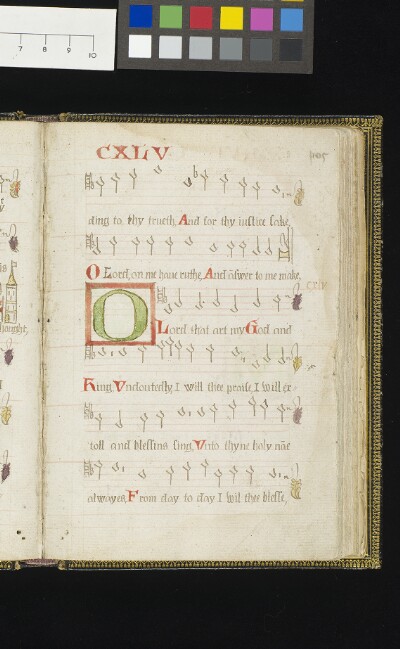 7 8 9 10
CXLV
ding to thy trueth, And for thy iustice sake,
O Lord, on me haue ruthe, And āswer to me make.
CXLV
O Lord that art my God and
King, Vndoutedly, I will thee praise, I will ex-
toll and blessins sing, Vnto thyne holy nāe
alwayes, From day to day I wil thee blesse,